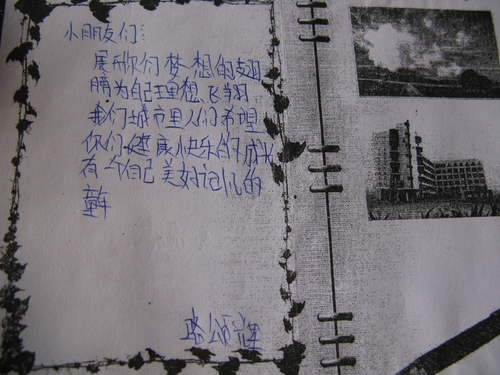 小朋友们:
展开你们梦想的翅
膀为自己理想飞翔
我们城市里人们希望
你们健康快乐的成长
有一个自己美好记忆的
童年